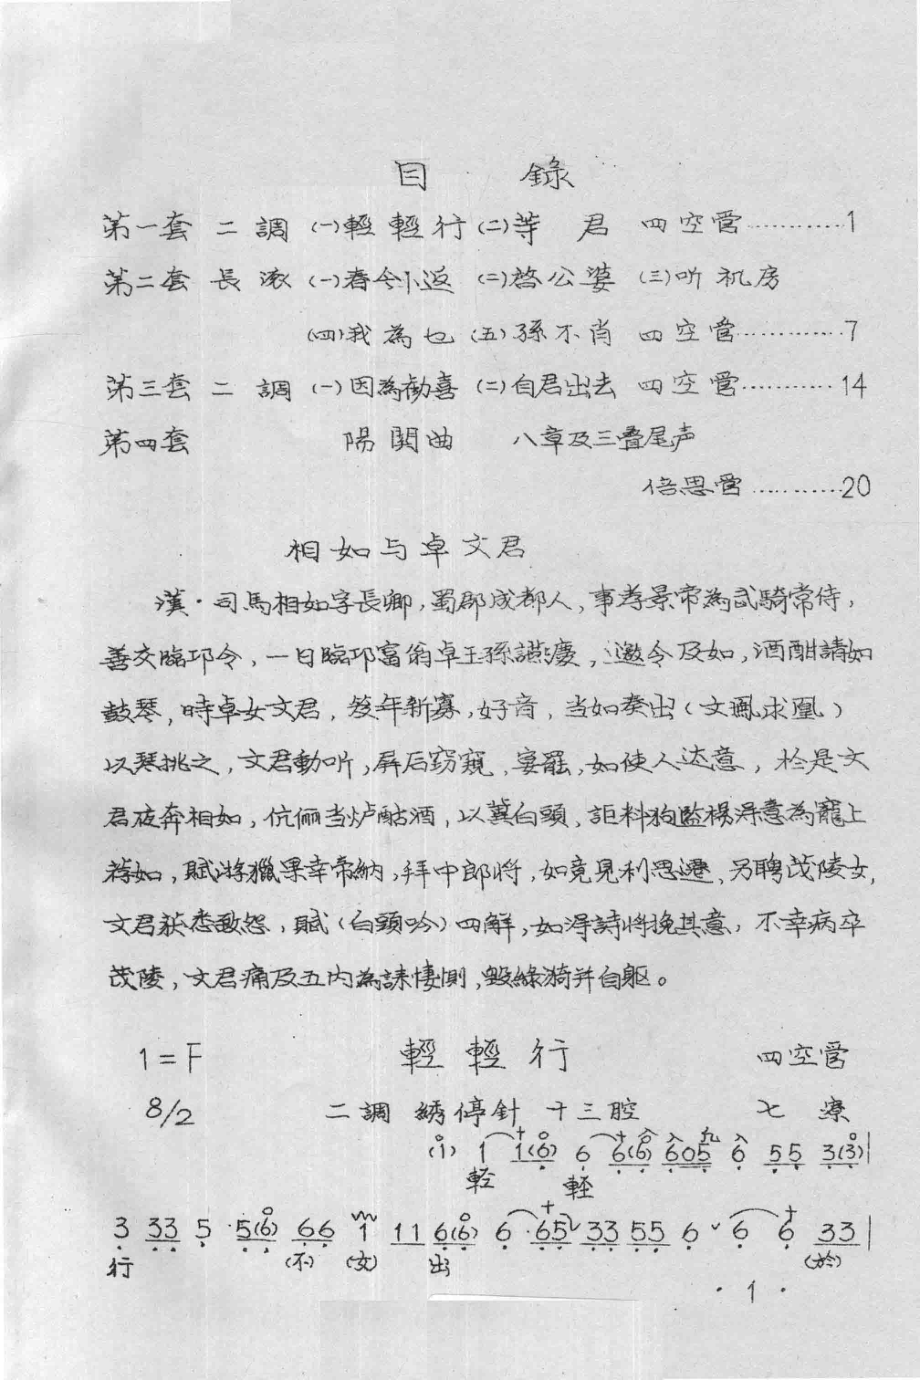 目　錄
第一套 二調 (一)輕輕行 (二)等　君 四空管…………1
第二套 長滚 (一)春今卜返 (二)啓公婆 (三)听机房
(四)我為也 (五)孫不肖 四空管…………7
第三套 二調 (一)因為勸喜 (二)自君出去 四空管…………14
第四套 陽関曲 八章及三叠尾声
倍思管…………20
相如与卓文君
漢·司馬相如字長卿,蜀郡成都人,事孝景帝為武騎常侍,
善交臨邛令,一日臨邛富翁卓王孫讌慶,邀令及如,酒酣請如
鼓琴,時卓女文君,笈年新寡,好音,当如奏出(文鳳求凰)
以琴挑之,文君動听,屏后窃窺,宴罷,如使人达意,於是文
君夜奔相如,伉俪当炉酤酒,以冀白頭,詎料狗監楊得意為寵上
荐如,賦游獵果幸帝納,拜中郎将,如竟見利思遷,另聘茂陵女,
文君获悉敵怨,賦(白頭吟)四解,如得詩将挽其意,不幸病卒
茂陵,文君痛及五内為誄悽惻,毀綠漪并自躯。
1=F 輕輕行 四空管
8/2 二調 綉停針 十三腔 七寮
(i) 1 1(6) 6 6(6) 605 6 55 3(3)
輕 輕
3 33 5 5(6) 66 1 11 6(6) 6 65 33 55 6 6 6 33
行 (不) (女) 出 (於)
·1·